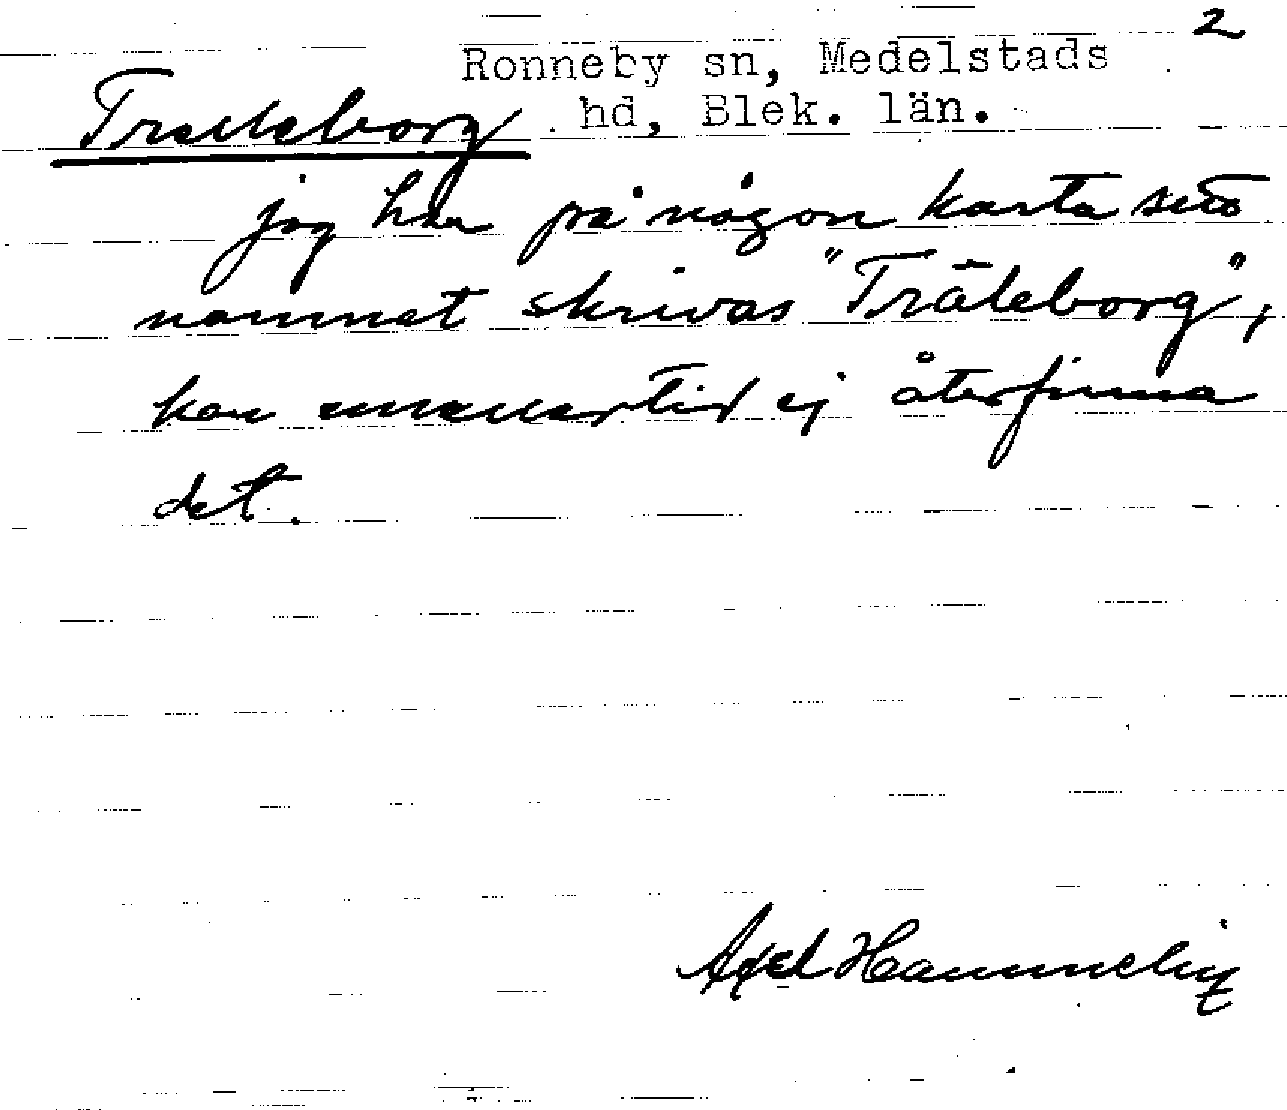 2
Ronneby sn, Medelstads
hd, Blek. län.
Trelleborg
jag har på någon karta sett
namnet skrivas "Träleborg",
kan emellertid ej återfinna
det.
Axel